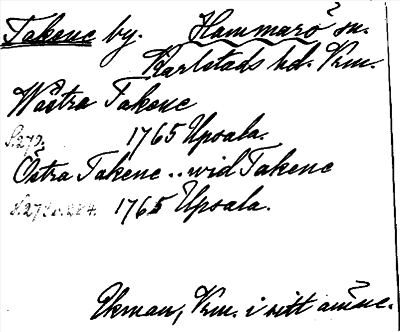 Takene by. Hammarö sn.
Karlstads hd. Vrm.
Wästra Takene
S. 279. 1765 Upsala.
Östra Takene .. wid Takene
1765 Upsala.
Ekman, Vrm. i sitt ämne.